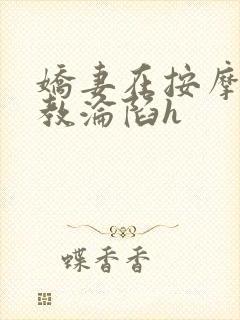 嬌妻在按摩
教淪陷h
蝶香香